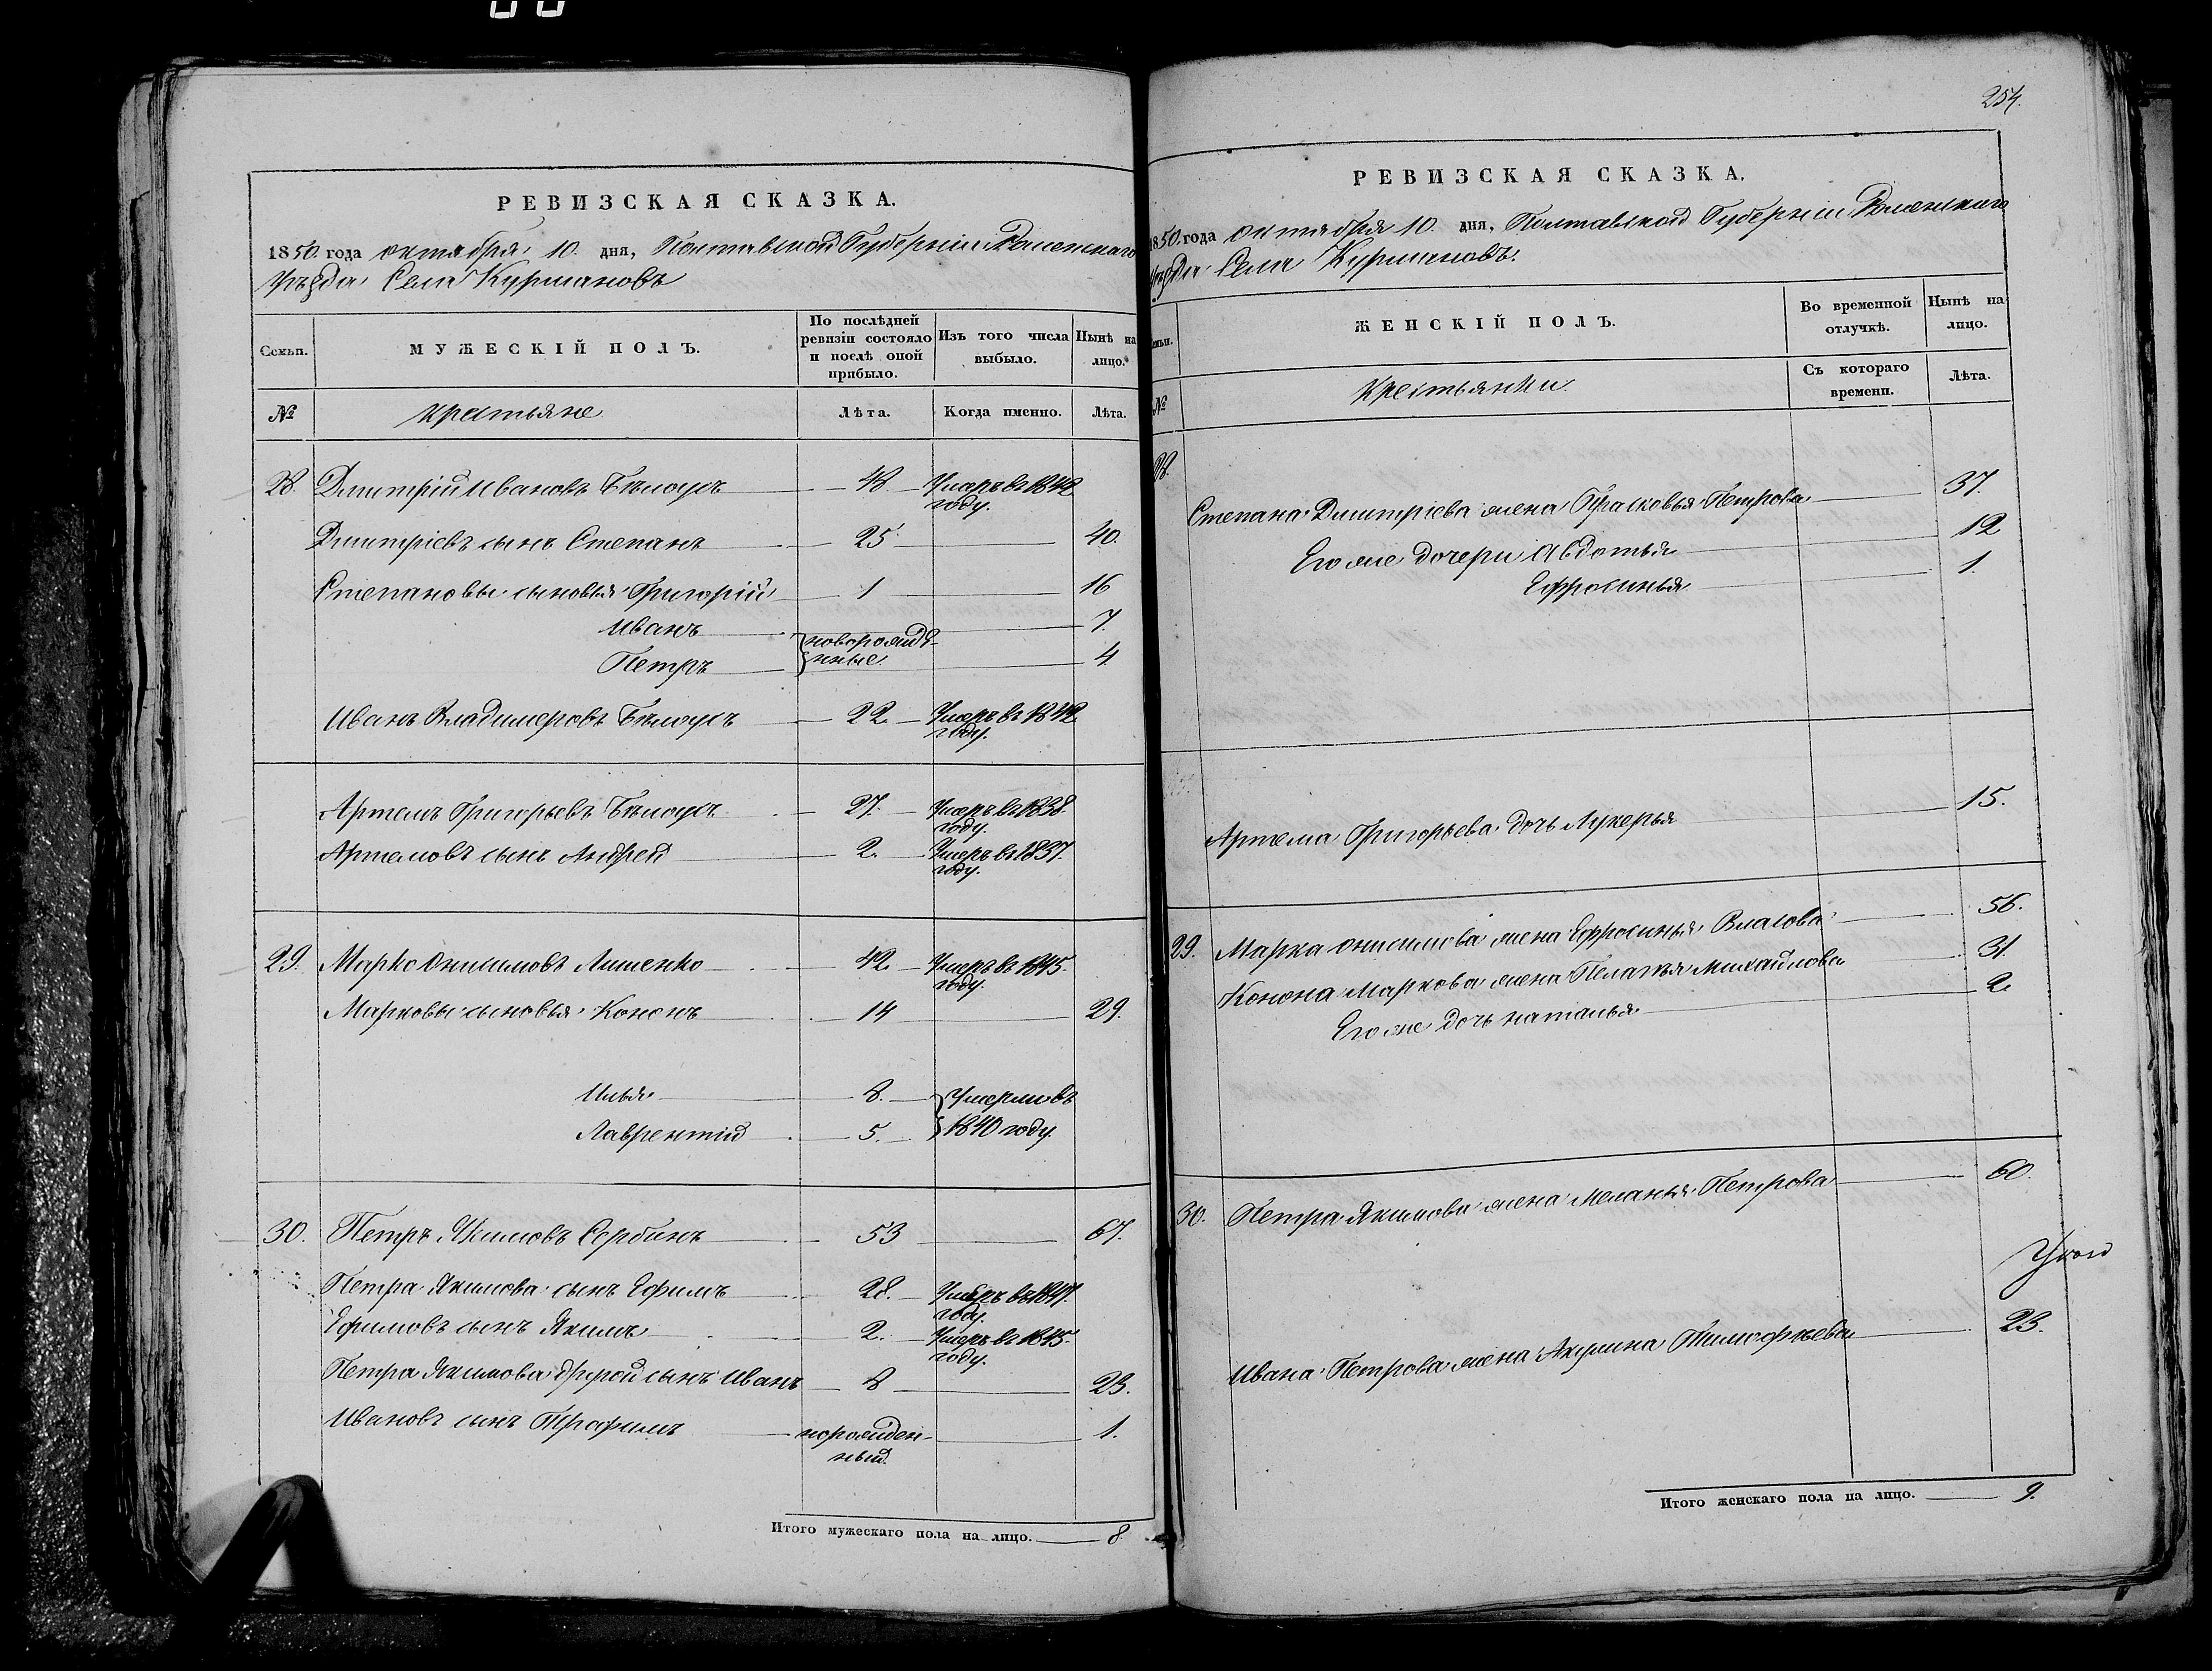 РЕВИЗСКАЯ СКАЗКА.
1850. года октября 10. дня, Полтавской Губерніи Роменскаго
Уѣзда Села Курмановъ
Семьи.
МУЖЕСКІЙ ПОЛЪ.
По послѣдней ревизіи состояло и послѣ оной прибыло.
Изъ того числа выбыло.
Нынѣ на лицо.
№
крестьяне
Лѣта.
Когда именно.
Лѣта.
28. Дмитрій Ивановъ Бѣлоусъ 48 Умеръ въ 1842 году.
Дмитріевъ сынъ Степанъ 25 40.
Степановы сыновья Григорій 1 16
Иванъ новорожде- 7.
Петръ нные 4
Иванъ Владимеровъ Бѣлоусъ 22. Умеръ въ 1842 году.
Артемъ Григорьевъ Бѣлоусъ 27. Умеръ въ 1838. году.
Артемовъ сынъ Андрей 2. Умеръ въ 1837. году.
29. Марко Онисимовъ Лишенко 42. Умеръ въ 1845. году.
Марковы сыновья Кононъ 14 29.
Илья 8. Умерли въ
Лаврентій 5. 1840 году.
30. Петръ Якимовъ Сербинъ 53 67.
Петра Якимова сынъ Ефимъ 28. Умеръ въ 1847. году.
Ефимовъ сынъ Якимъ 2. Умеръ въ 1845. году.
Петра Якимова другой сынъ Иванъ 8 23.
Ивановъ сынъ Трафимъ норожден- 1.
ный.
Итого мужескаго пола на лицо. 8.
254.
РЕВИЗСКАЯ СКАЗКА.
1850. года октября 10. дня, Полтавской Губерніи Роменскаго
Уѣзда Села Курмановъ.
Семьи.
ЖЕНСКІЙ ПОЛЪ.
Во временной отлучкѣ.
Нынѣ на лицо.
№
крестьянки.
Съ котораго времени.
Лѣта.
28.
Степана Дмитріева жена Прасковья Петрова 37.
Его же дочери Авдотья 12
Ефросинья 1.
Артема Григорьева дочь Лукерья 15.
29. Марка Онисимова жена Ефросинья Власова 56.
Конона Маркова жена Пелагья Михайлова 31.
Его же дочь наталья 2.
30. Петра Якимова жена Меланья Петрова 60.
Ивана Петрова жена Акулина Тимофѣева 23.
Итого женскаго пола на лицо. 9.